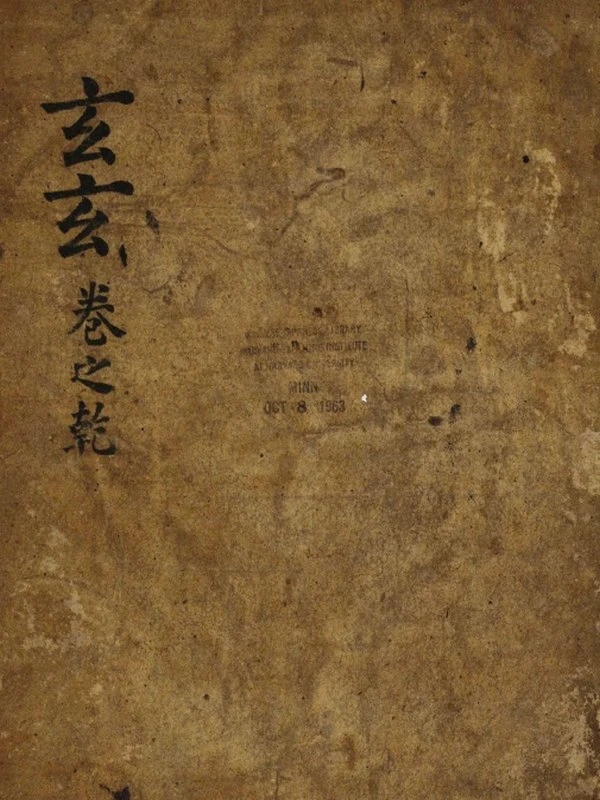 玄玄 卷之乾
LIBRARY
INSTITUTE
OCT 8 1963